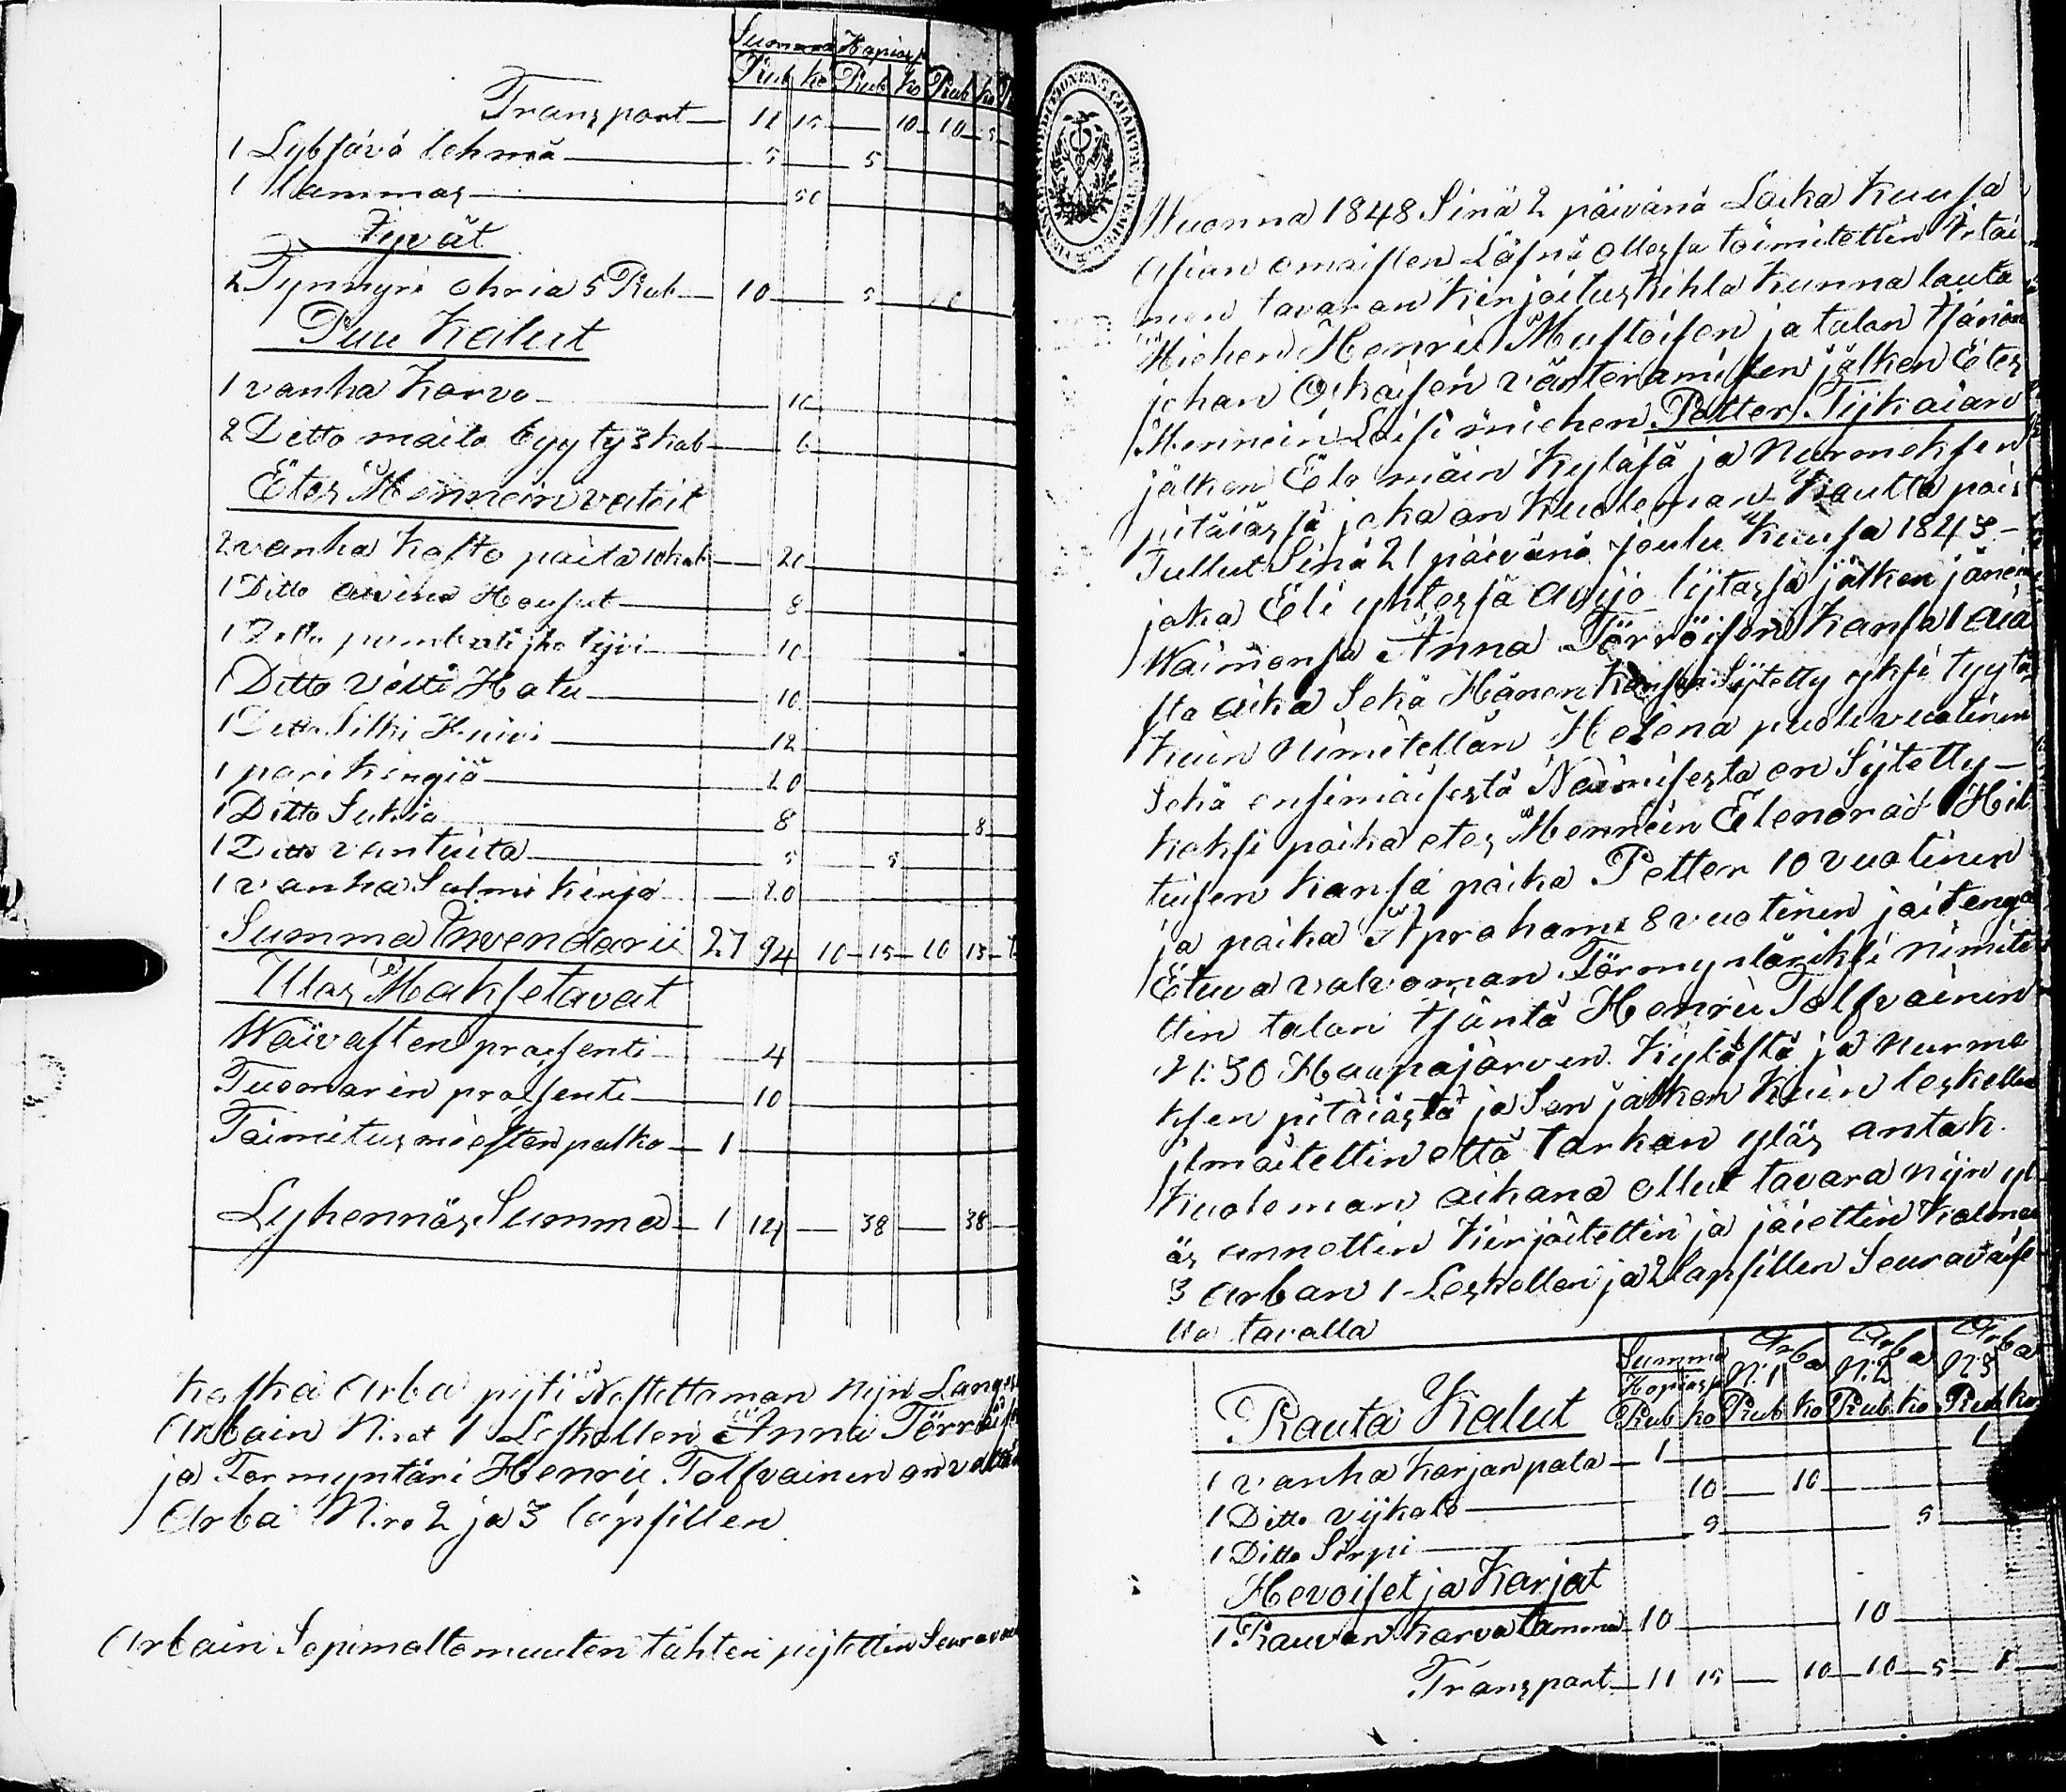 Summa Hopias
Rub ko Rub ko Rub ko
Transport 11 15 10 10 5
1 Lybsävä lehmä 5 5
1 Lammas 50
Jyvät
2 Tynnyri ohria 5 Rub 10 5
Puu Kalut
1 vanha Korvo 10
2 Ditto maito tyyty 3 kob 6
Etes Mennein vateit
2 vanha Kolto paita 10kob 20
1 Ditto Housut 8
1 Ditto 10
1 Ditto Velti Hatu 10
1 Ditto Silki Huivi 12
1 pari Kengiä 20
1 Ditto Sukia 8 8
1 Ditto vantuita 5 5
1 vanha Salmi Kirja 20
Summa Invendarii 27 94 10 15 10 15
Ulos Maksetavat
Waivasten prosenti 4
Tuomarin prosenti 10
Toimitus miesten palko 1
Lyhennös Summa 1 14 38 38
Koska Arba pijti Nostettaman Nijn Langes
Arbain N:rot 1 Leskellen Anna Törröis
ja Formyntäri Henrii Tolfvainen on
Arba N:ro 2 ja 3 lapsillen
Arbain Sopimattomuuten tähten pijtettin Seurava
EXPEDITIONENS CHARTÆ
Wuonna 1848 Sinä 2 päivänä Loka Kuusa
Asian omaisten Läsnä ollessa toimitettin Irtai
men tavaran Kirjoitus Kihla Kunna lauta
Miehen Henrii Mustoisen ja talon Isänän
johan Oskaisen värterämisen jälken Etes
Mennein Loisi miehen Petter Tijkaian
jälken Elo mäin Kyläsä ja Nurmeksen
pitäiässä joka on Kuoleman Kautta pois
Tullut Sinä 21 päivänä joulu Kuusa 1843 –
joka Eli yhtessä Avijo lijtossa jälken jänein
Waimonsa Anna Törröisen Kansa 1 ai
sta aika Sekä Hänen Kansa Sijtetty yksi tyytö
Kuin Nimitellän Helena puoli vuotinen
Sekä ensimäisestä Naimisesta on Sijtetty –
Kaksi poika etes Mennein Elenora Hil
tuisen Kansa poika Petter 10 vuotinen
ja poika Aprahami 8 vuotinen joitenga
Etuva valvoman Förmyntäriksi Nimite
ttin talon Isäntä Henrii Tolfvainen
N: 30 Haupajärven Kylästä ja Nurme
ksen pitäiästä ja Sen jälken Kuin leskellen
jlmoitettin että tarkan ylös antah.
Kuoleman aikana ollut tavara Nijn yl
äs annettin Kirjoitettin ja jaiettin Kolmen
3 Arban 1 Leskellen ja 2 lapsillen Seuravaise
lla tavalla
Summa Arba Arba Arba
Hopias N:1 N:2 N:3
Rauta Kalut Rub ko Rub ko Rub ko Rub ko
1 vanha Karjan pata 1 1
1 Ditto vijkate 10 10
1 Ditto Sirpi 5 5
Hevoiset ja Karjat
1 Rauvan Karva tamma 10 10
Transport 11 15 10 10 5 1